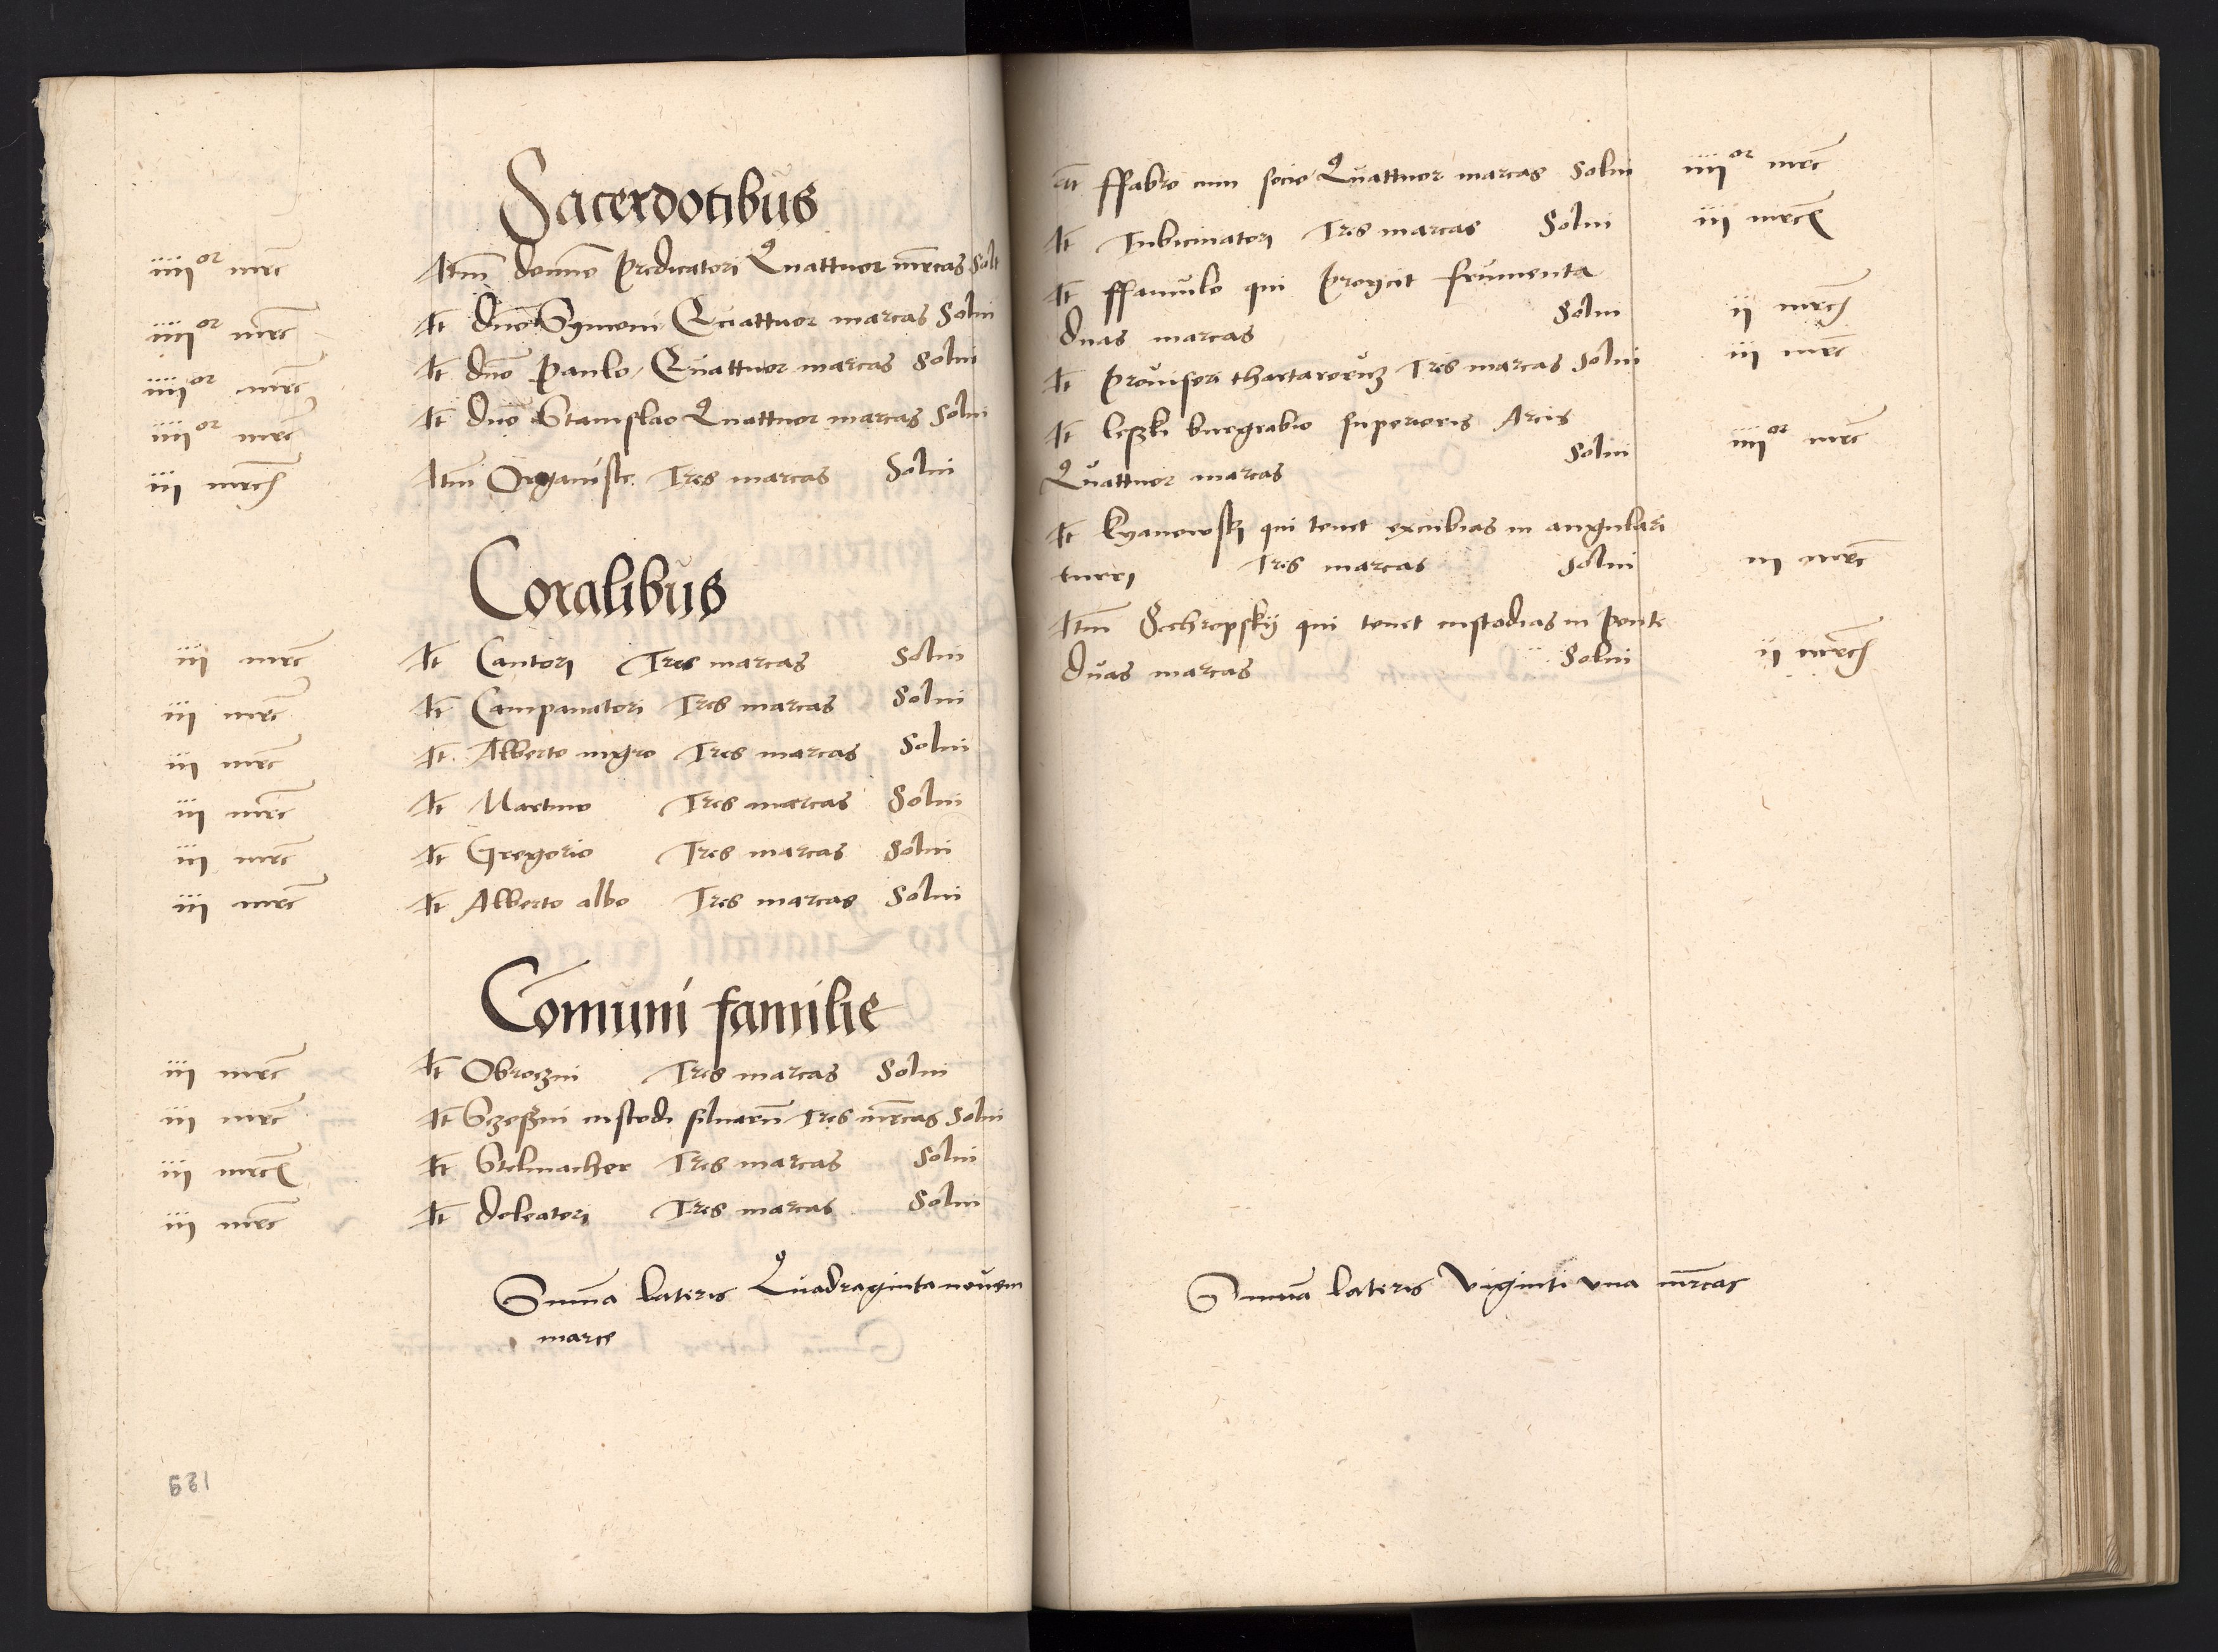 Sacerdotibus
iiii^or mrc̄ Itm̄ domino predicatori Quattuor mr̄cas Sol
iiii^or mrc̄ It̄ dno Symoni Quattuor marcas Solui
iiii^or mrc̄ It̄ dno Paulo Quattuor marcas Solui
iiii^or mrc̄ It̄ dno Stanislao Quattuor marcas Solui
iii mrc̄ Itm̄ Organiste Tres marcas Solui
Coralibus
iii mrc̄ It̄ Cantori Tres marcas Solui
iii mrc̄ It̄ Campanatori Tres marcas Solui
iii mrc̄ It̄ Alberto nigro Tres marcas Solui
iii mrc̄ It̄ Martino Tres marcas Solui
iii mrc̄ It̄ Gregorio Tres marcas Solui
iii mrc̄ It̄ Alberto albo Tres marcas Solui
Comuni familie
iii mrc̄ It̄ Obroczni Tres marcas Solui
iii mrc̄ It̄ custodi siluarū Tres mr̄cas Solui
iii mrc̄ It̄ Stelmacher Tres marcas Solui
iii mrc̄ It̄ doleatori Tres marcas Solui
Summa lateris Quadragintanouem
marce
129
It̄ ffabro cum socio Quattuor marcas Solui iiii^or mrc̄
It̄ Tubicinatori Tres marcas Solui iii mrc̄
It̄ ffamulo qui proycit frumenta
duas marcas Solui ii mrc̄
It̄ prouisori thartarorum Tres marcas Solui iii mrc̄
It̄ leszki burgrabio superioris Arcis
Quattuor marcas Solui iiii^or mrc̄
It̄ kyanowski qui tenet excubias in angulari
turri Tres marcas Solui iii mrc̄
Itm̄ qui tenet custodias in ponte
duas marcas Solui ii mrc̄
Summa lateris viginti vna mr̄cas